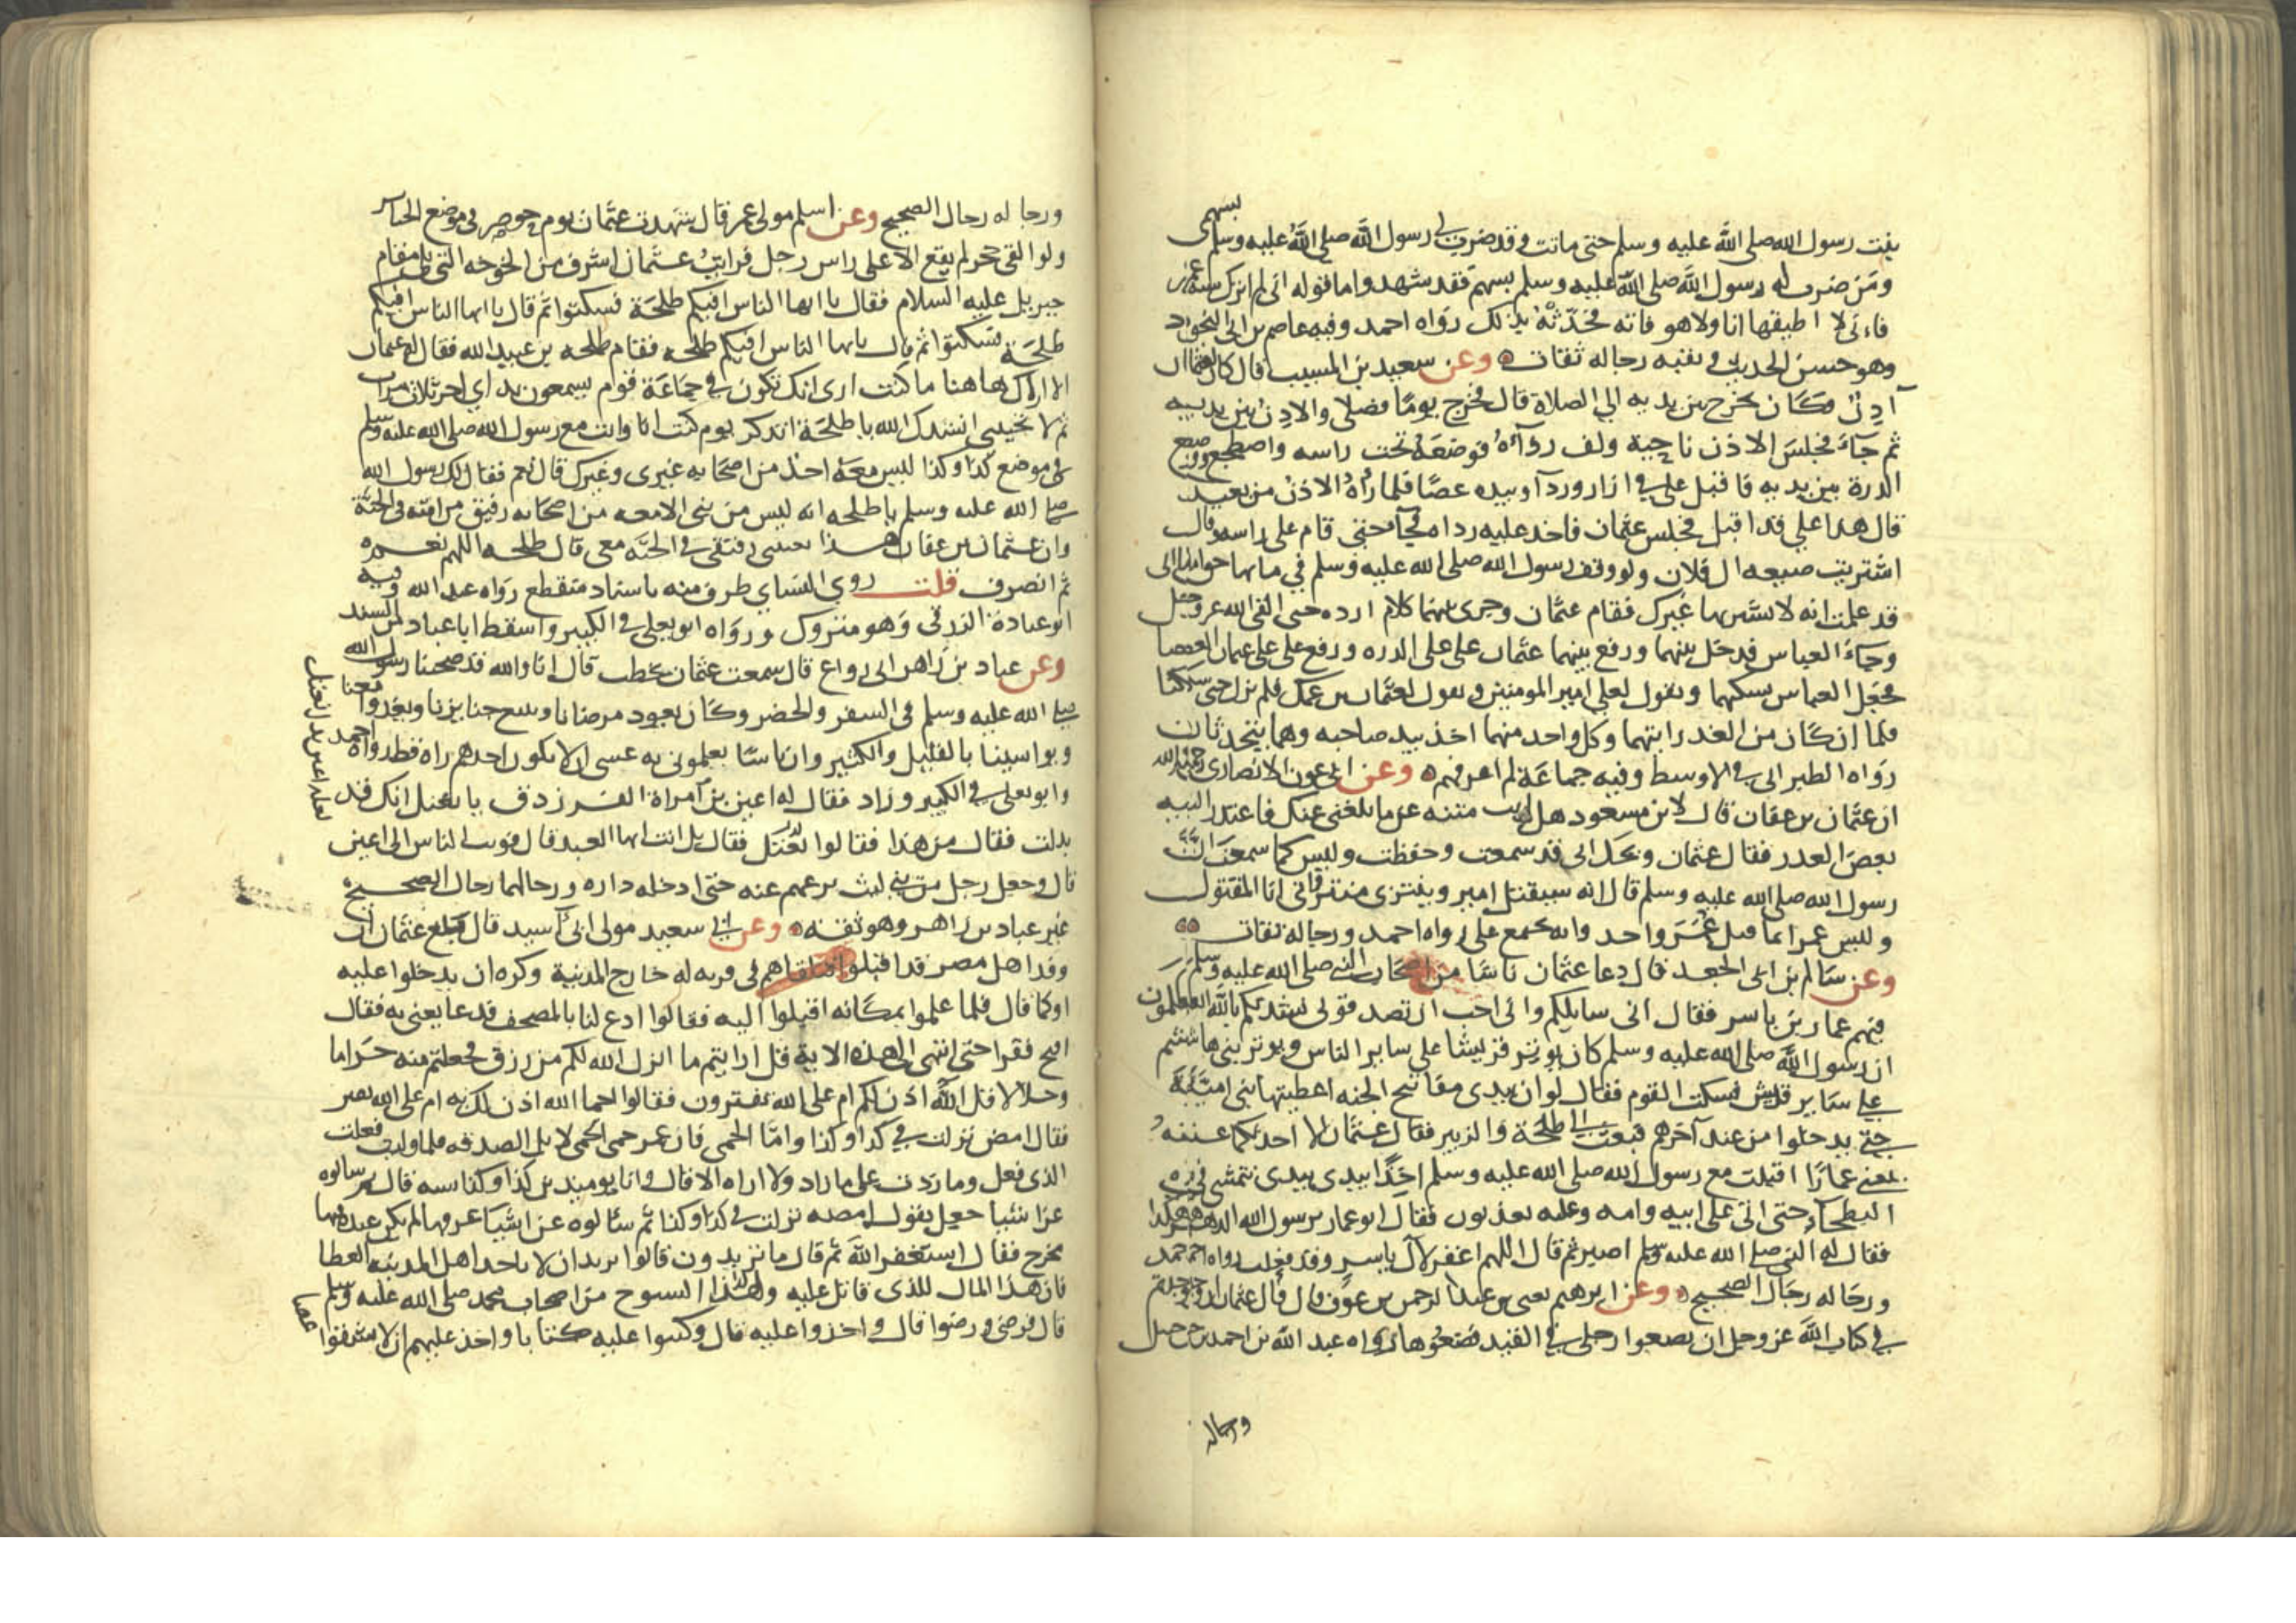 بنت رسول الله صلى الله عليه وسلم حتى ماتت وقد ضرب لي رسول الله صلى الله عليه وسلم بسهمي
ومن ضرب له رسول الله صلى الله عليه وسلم بسهم فقد شهد واما قوله اني لم اترك سنة عمر
فاني لا اطيقها انا ولا هو فاته فحدثه بذلك رواه احمد وفيه عاصم بن ابي النجود
وهو حسن الحديث وبقيه رجاله ثقات وعن سعيد بن المسيب قال كان لعثمان
آذن وكان يخرج بين يديه الي الصلاة قال فخرج يوما فصلى والاذن بين يديه
ثم جاء فجلس الاذن ناحية ولف رداءه فوضعه تحت راسه واضطجع ووضع
الدرة بين يديه فاقبل علي في ازار وردآ وبيده عصا فلما رآه الاذن من بعيد
قال هذا علي قد اقبل فجلس عثمان فاخذ عليه رداه فجآ حتى قام على راسه وقال
اشتريت ضيعه ال فلان ولوقف رسول الله صلى الله عليه وسلم في مايها حق اما انى
قد علمت انه لا يشتريها غيرك فقام عثمان وجرى بينهما كلام ارده حتى القى الله عز وجل
وجاء العباس فدخل بينهما ورفع بينهما عثمان على علي الدره ورفع علي على عثمان العصا
فجعل العباس يسكنهما ويقول لعلي امير المومنين ويقول لعثمان بن عمك فلم يزل حتى سكتا
فلما ان كان من الغد رايتهما وكل واحد منهما اخذ بيد صاحبه وهما يتحدثان
رواه الطبراني في الاوسط وفيه جماعة لم اعرفهم وعن ابي عون الانصاري
ان عثمان بن عفان قال لابن مسعود هل انت منته عن ما بلغني عنك فاعتذر اليه
بعض العذر فقال عثمان ويحك انى قد سمعت وحفظت وليس كما سمعت ان
رسول الله صلى الله عليه وسلم قال انه سيقتل امير وينتزى منتزى واني انا المقتول
وليس عمر انما قتل عمر واحد وانه يجمع علي رواه احمد ورجاله ثقات
وعن سالم بن ابي الجعد قال دعا عثمان ناسا من اصحاب النبي صلى الله عليه وسلم
فيهم عمار بن ياسر فقال اني سايلكم واني احب ان تصدقوني نشدتكم بالله اتعلمون
ان رسول الله صلى الله عليه وسلم كان يوثر قريشا علي ساير الناس ويوثر بني هاشم
علي ساير قريش فسكت القوم فقال لو ان بيدي مفاتيح الجنه اعطيتها بني امية
حتى يدخلوا من عند آخرهم فبعث الى طلحة والزبير فقال عثمان الا احدثكما عنه
يعني عمارا اقبلت مع رسول الله صلى الله عليه وسلم اخذا بيدي نتمشى في
البطحآ حتى اتى على ابيه وامه وعليه يعذبون فقال ابو عمار يرسول الله الدهر هكذا
فقال له النبي صلى الله عليه وسلم اصبر ثم قال اللهم اغفر لآل ياسر وقد فعلت رواه احمد
ورجاله رجال الصحيح وعن ابرهيم يعني بن عبد الرحمن بن عوف قال قال عثمان ان وجدتم
في كتاب الله عز وجل ان تضعوا رجلي في القيد فضعوها رواه عبد الله بن احمد بن حنبل
ورجاله
ورجاله رجال الصحيح وعن اسلم مولى عمر قال شهدت عثمان يوم حوصر في موضع الجنايز
ولو القي حجر لم يقع الا على راس رجل فرايت عثمان اشرف من الخوخه التي تلي مقام
جبريل عليه السلام فقال يا ايها الناس افيكم طلحة فسكتوا ثم قال يا ايها الناس افيكم
طلحة فسكتوا ثم قال يايها الناس افيكم طلحه فقام طلحه بن عبيد الله فقال له عثمان
الا اراك هاهنا ما كنت ارى انك تكون في جماعة قوم يسمعون نداي اخر ثلاث مرات
ثم لا تجيبني انشدك الله يا طلحة اتذكر يوم كنت انا وانت مع رسول الله صلى الله عليه وسلم
في موضع كذا وكذا ليس معه احد من اصحابه غيري وغيرك قال نعم فقال لك رسول الله
صلى الله عليه وسلم يا طلحه انه ليس من نبي الا معه من اصحابه رفيق من امته في الجنة
وان عثمان بن عفان هذا يعنيني رفيقي في الجنه معي قال طلحه اللهم نعم
ثم انصرف قلت روى النساي طرف منه باسناد منقطع رواه عبد الله وفيه
ابو عبادة الزرقي وهو متروك ورواه ابو يعلى في الكبير واسقط ابا عباد من السند
وعن عباد بن زاهر ابى رواع قال سمعت عثمان يخطب قال انا والله قد صحبنا رسول الله
صلى الله عليه وسلم في السفر والحضر وكان يعود مرضانا ويتبع جنايزنا ويغزوا معنا
ويواسينا بالقليل والكثير وان ناسا يعلموني به عسى ان لا يكون احدهم راه قط رواه احمد
وابو يعلى في الكبير وزاد فقال له اعين بن امراة الفرزدق يا نعثل انك قد
بدلت فقال من هذا فقالوا اعين فقال بل انت ايها العبد قال فوثب الناس الى اعين
قال وجعل رجل من بني ليث يزعهم عنه حتى ادخله داره ورجالهما رجال الصحيح
غير عباد بن زاهر وهو ثقه وعن ابي سعيد مولى ابي اسيد قال بلغ عثمان ان
وفد اهل مصر قد اقبلوا فتلقاهم في قريه له خارج المدينة وكره ان يدخلوا عليه
او كما قال فلما علموا بمكانه اقبلوا اليه فقالوا ادع لنا بالمصحف فدعا يعني به فقال
افتح فقرا حتى انتهى الى هذه الاية قل ارايتم ما انزل الله لكم من رزق فجعلتم منه حراما
وحلالا قل الله اذن لكم ام على الله تفترون فقالوا احمى الله اذن لك به ام على الله تفتر
فقال امض نزلت في كذا وكذا واما الحمى فان عمر حمى الحمى لابل الصدقه فلما وليت فعلت
الذي فعل وما زدت على ما زاد ولا اراه الا قال وانا يوميذ بن كذا وكذا سنه قال ثم سالوه
عن اشيا جعل يقول امضه نزلت في كذا وكذا ثم سالوه عن اشيا عرفها لم يكن عنده منها
مخرج فقال استغفر الله ثم قال ما تريدون قالوا نريد ان لا ياخذ اهل المدينه العطا
فان هذا المال للذي قاتل عليه ولهذا الشيوخ من اصحاب محمد صلى الله عليه وسلم
قال فرضي ورضوا قال واخذوا عليه قال وكتبوا عليه كتابا واخذ عليهم ان لا يشقوا
عصا